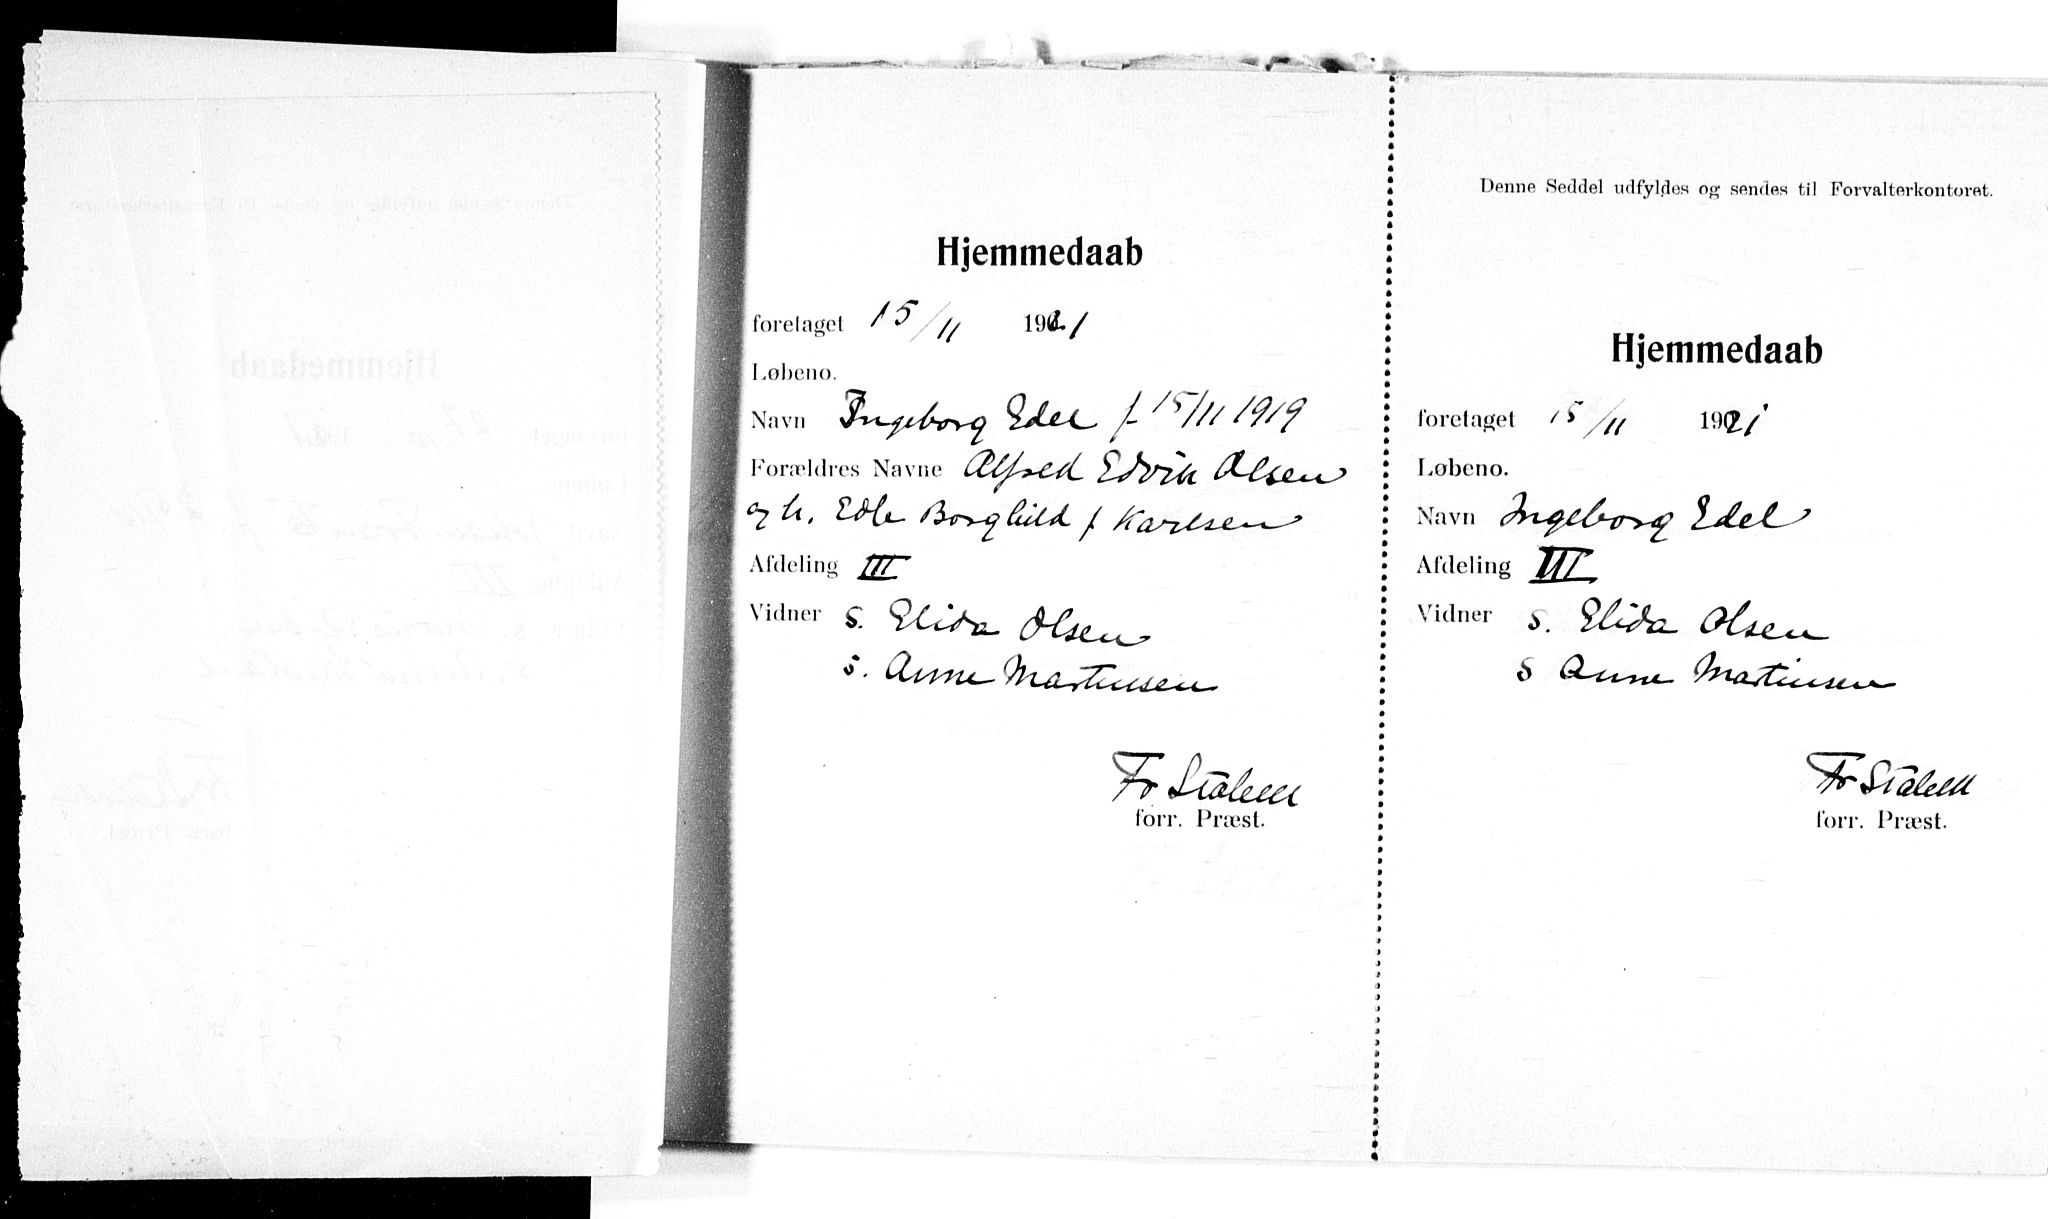 Hjemmedaab
foretaget 15/11 1921
Løbeno.
Navn Ingeborg Edel f 15/11 1919
Forældres Navne Alfred Edvin Olsen
og h. Edle Borghild f Karlsen
Afdeling III
Vidner S. Elida Olsen
S. Anne Martinsen
Fr Stalem
forr. Præst.
Denne Seddel udfyldes og sendes til Forvalterkontoret.
Hjemmedaab
foretaget 15/11 1921
Løbeno.
Navn Ingeborg Edel
Afdeling III
Vidner S. Elida Olsen
S Anne Martinsen
forr. Præst.